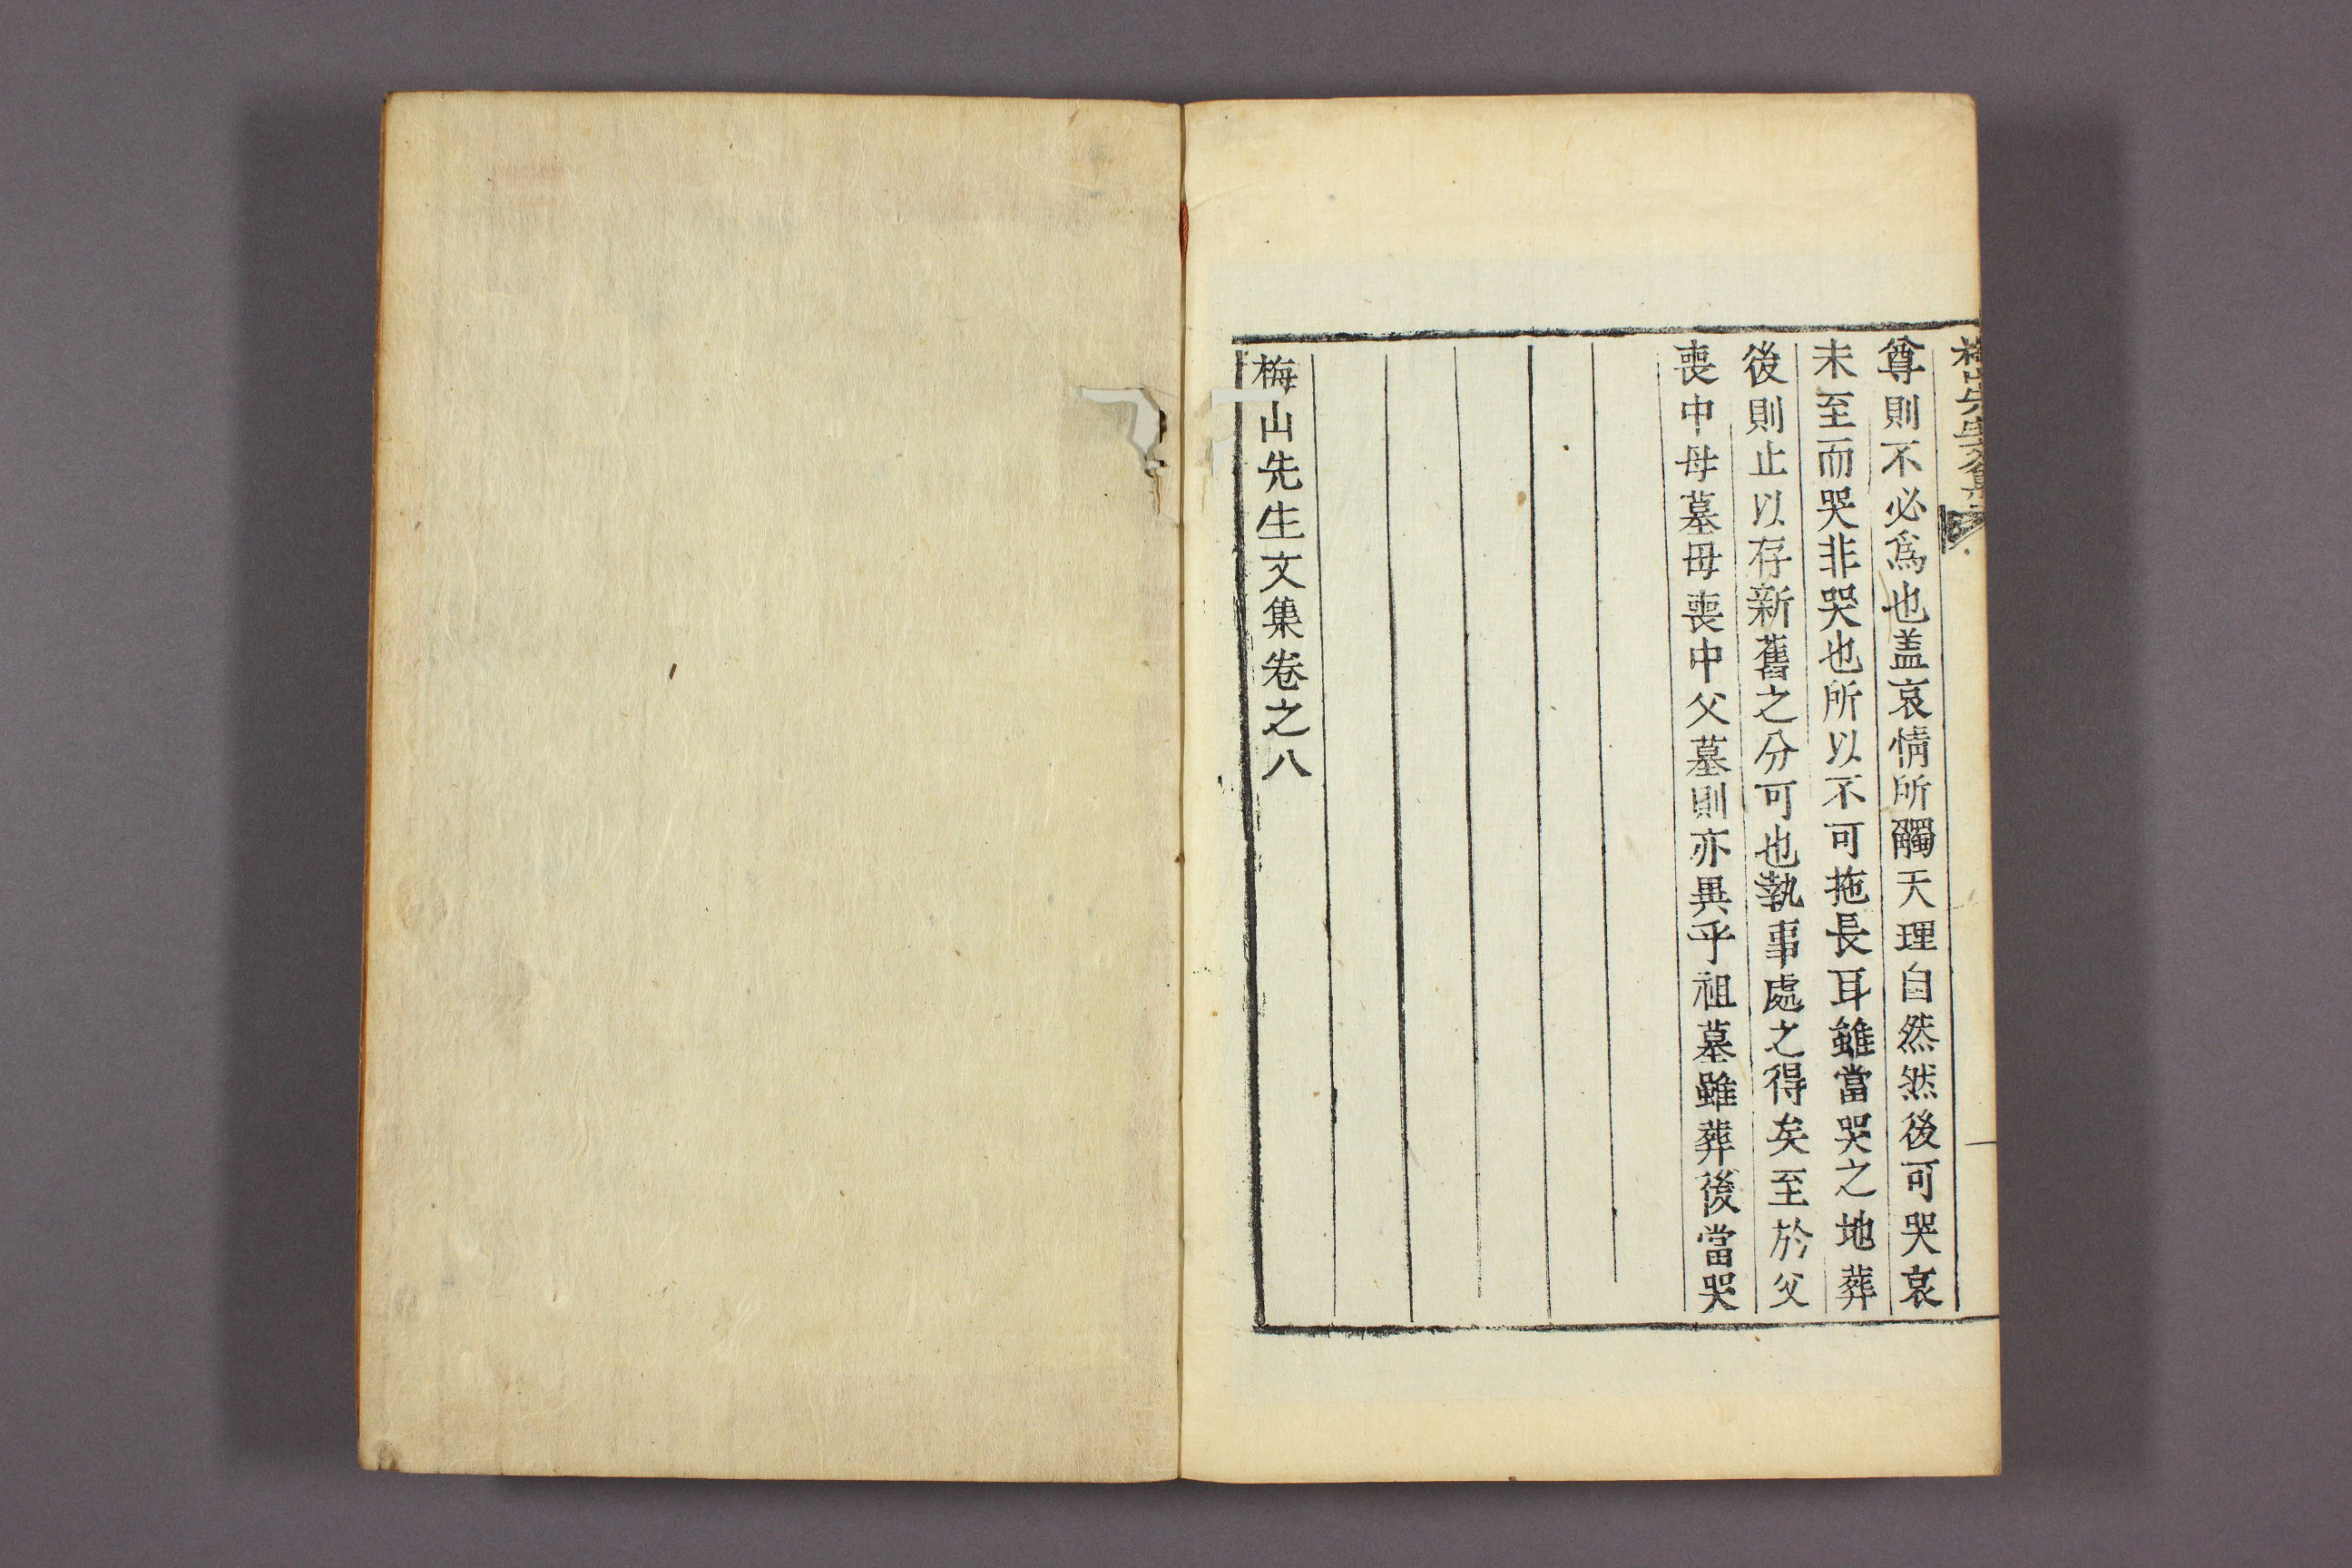 梅山先生文集
尊則不必爲也盖哀情所觸天理自然然後可哭哀
未至而哭非哭也所以不可拖長耳雖當哭之地葬
後則止以存新舊之分可也執事處之得矣至於父
喪中母墓毋喪中父墓則亦異乎祖墓雖葬後當哭
梅山先生文集卷之八